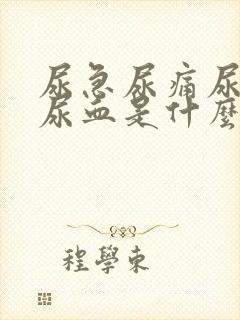 尿急尿痛尿
尿血是什麼
程學東